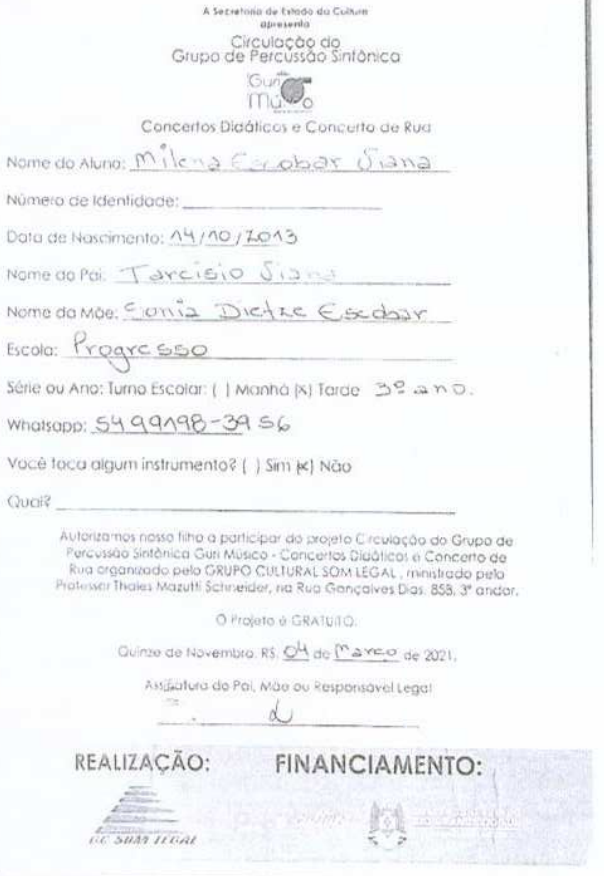 A Secretaria de Estado da Cultura
apresenta
Circulação do
Grupo de Percussão Sinfônica
Guri
Músico
Concertos Didáticos e Concerto de Rua
Nome do Aluno: Milena Escobar Viana
Número de Identidade:
Data de Nascimento: 14/10/2013
Nome do Pai: Tarcisio Viana
Nome da Mãe: Sonia Dietze Escobar
Escola: Progresso
Série ou Ano: Turno Escolar: ( ) Manhã (x) Tarde 3º ano.
Whatsapp: 54 99198-3956
Você toca algum instrumento? ( ) Sim (x) Não
Qual?
Autorizamos nosso filho a participar do projeto Circulação do Grupo de
Percussão Sinfônica Guri Músico - Concertos Didáticos e Concerto de
Rua organizado pelo GRUPO CULTURAL SOM LEGAL, ministrado pelo
Professor Thales Mazutti Schneider, na Rua Gonçalves Dias, 858, 3º andar.
O Projeto é GRATUITO.
Quinze de Novembro, RS, 04 de Março de 2021.
Assinatura do Pai, Mãe ou Responsável Legal
REALIZAÇÃO: FINANCIAMENTO:
GC SOM LEGAL